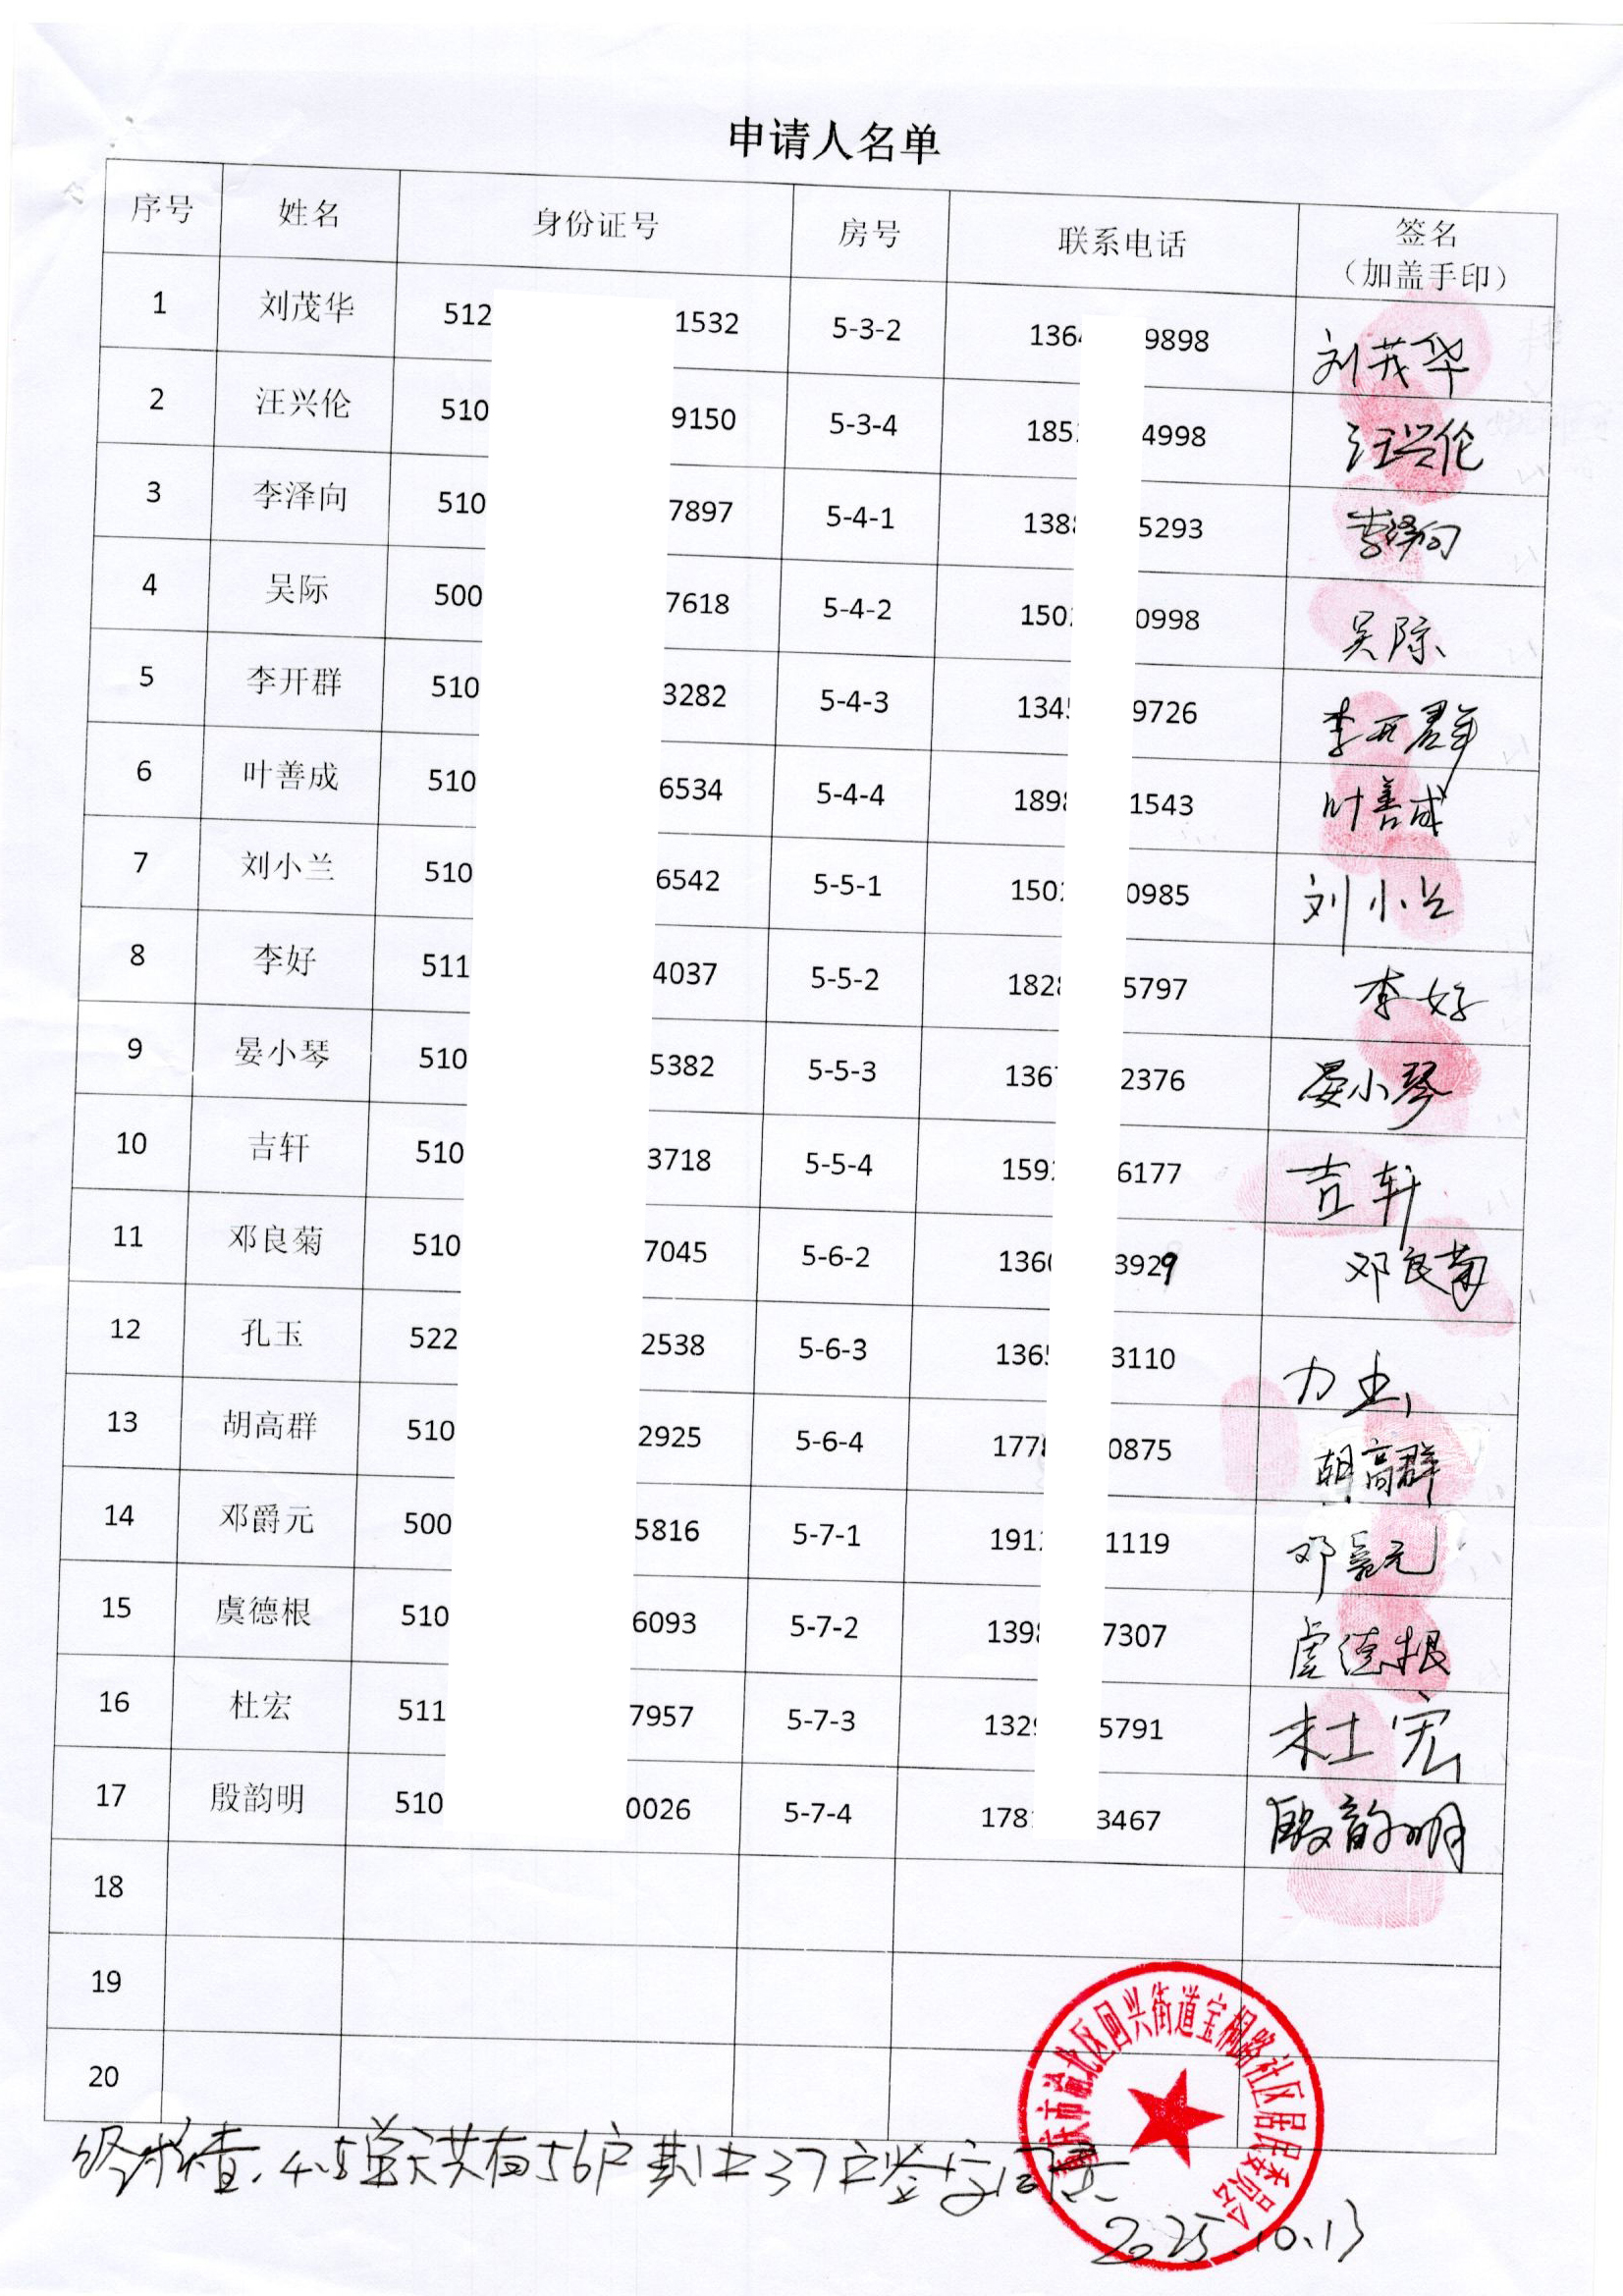 申请人名单
序号 姓名 身份证号 房号 联系电话 签名
（加盖手印）
1 刘茂华 512 1532 5-3-2 136 9898 刘茂华
2 汪兴伦 510 9150 5-3-4 185 4998 汪兴伦
3 李泽向 510 7897 5-4-1 138 5293 李泽向
4 吴际 500 7618 5-4-2 150 0998 吴际
5 李开群 510 3282 5-4-3 134 9726 李开群
6 叶善成 510 6534 5-4-4 189 1543 叶善成
7 刘小兰 510 6542 5-5-1 150 0985 刘小兰
8 李好 511 4037 5-5-2 182 5797 李好
9 晏小琴 510 5382 5-5-3 136 2376 晏小琴
10 吉轩 510 3718 5-5-4 159 6177 吉轩
11 邓良菊 510 7045 5-6-2 136 3929 邓良菊
12 孔玉 522 2538 5-6-3 136 3110
13 胡高群 510 2925 5-6-4 177 0875 胡高群
14 邓爵元 500 5816 5-7-1 191 1119 邓爵元
15 虞德根 510 6093 5-7-2 139 7307 虞德根
16 杜宏 511 7957 5-7-3 132 5791 杜宏
17 殷韵明 510 0026 5-7-4 178 3467 殷韵明
18
19
20
重庆市渝北区回兴街道宝桐路社区居民委员会
经核查，4.5单元共有56户其中37户签字同意
2025.10.13